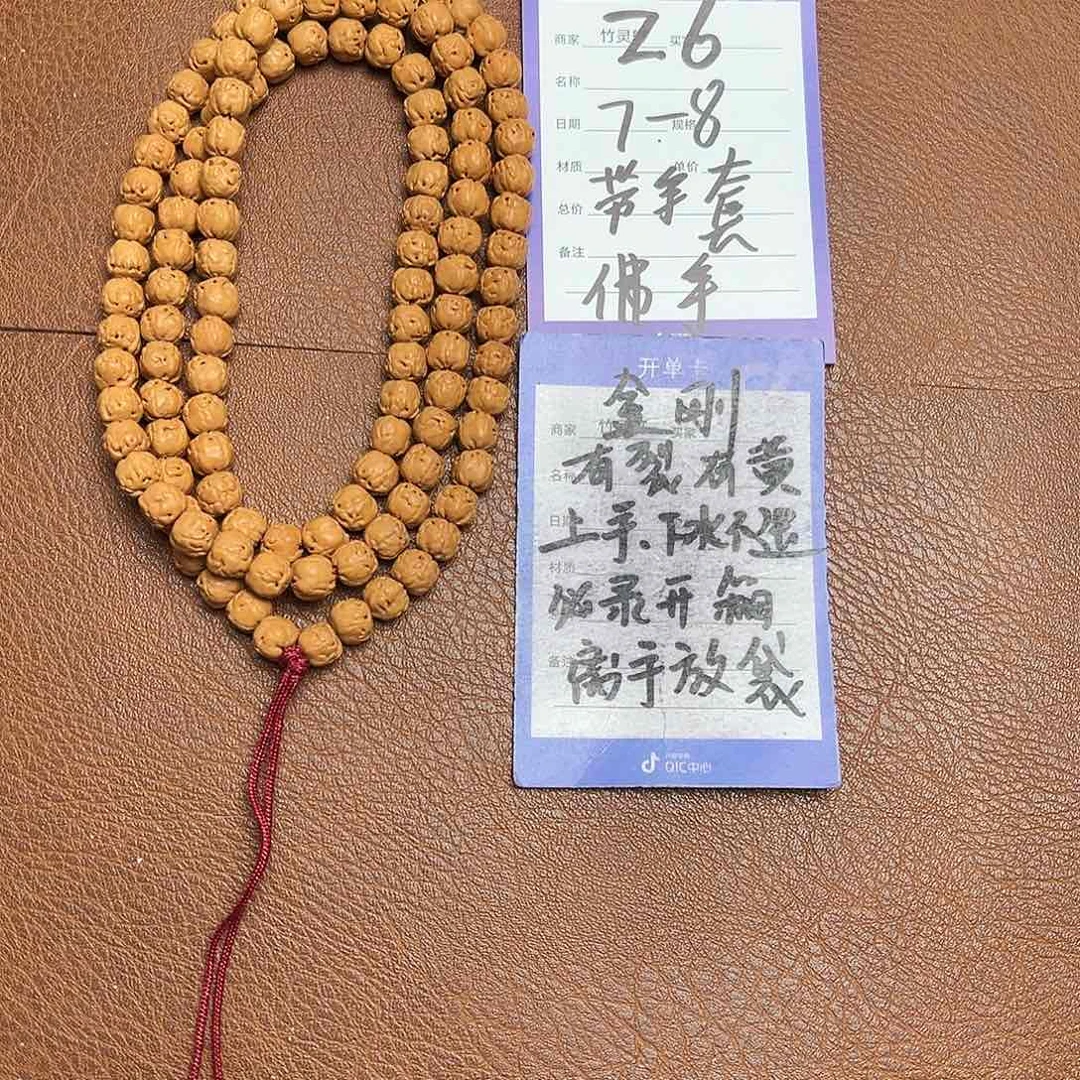 26
商家 竹灵 买
名称
7-8
日期 规格
带手套
材质 单价
总价
佛手
备注
开单卡
金刚
商家 竹 买家
有裂有黄
名称
上手、下水不退
日期
材质
必录开箱
离手放袋
备注
QIC中心